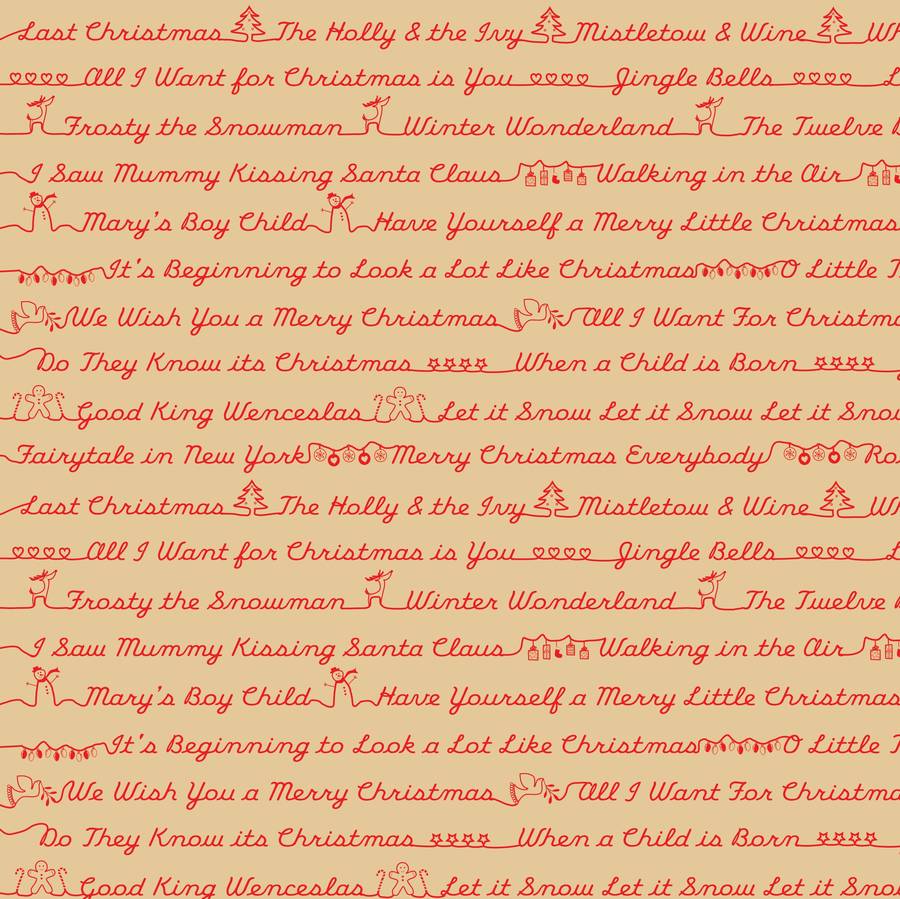 Last Christmas The Holly & the Ivy Mistletow & Wine
All I Want for Christmas is You Jingle Bells
Frosty the Snowman Winter Wonderland The Twelve
I Saw Mummy Kissing Santa Claus Walking in the Air
Mary's Boy Child Have Yourself a Merry Little Christmas
It's Beginning to Look a Lot Like Christmas O Little
We Wish You a Merry Christmas All I Want For Christma
Do They Know its Christmas When a Child is Born
Good King Wenceslas Let it Snow Let it Snow Let it Snow
Fairytale in New York Merry Christmas Everybody
Last Christmas The Holly & the Ivy Mistletow & Wine
All I Want for Christmas is You Jingle Bells
Frosty the Snowman Winter Wonderland The Twelve
I Saw Mummy Kissing Santa Claus Walking in the Air
Mary's Boy Child Have Yourself a Merry Little Christmas
It's Beginning to Look a Lot Like Christmas O Little
We Wish You a Merry Christmas All I Want For Christma
Do They Know its Christmas When a Child is Born
Good King Wenceslas Let it Snow Let it Snow Let it Sno